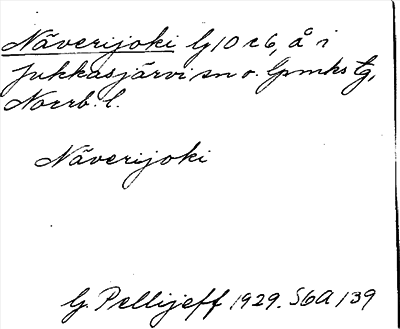 Näverijoki G 10 c 6, å i
Jukkasjärvi sn o. lpmks tg,
Norrb. l.
Näverijoki
G. Pellijeff 1929. S6A 139